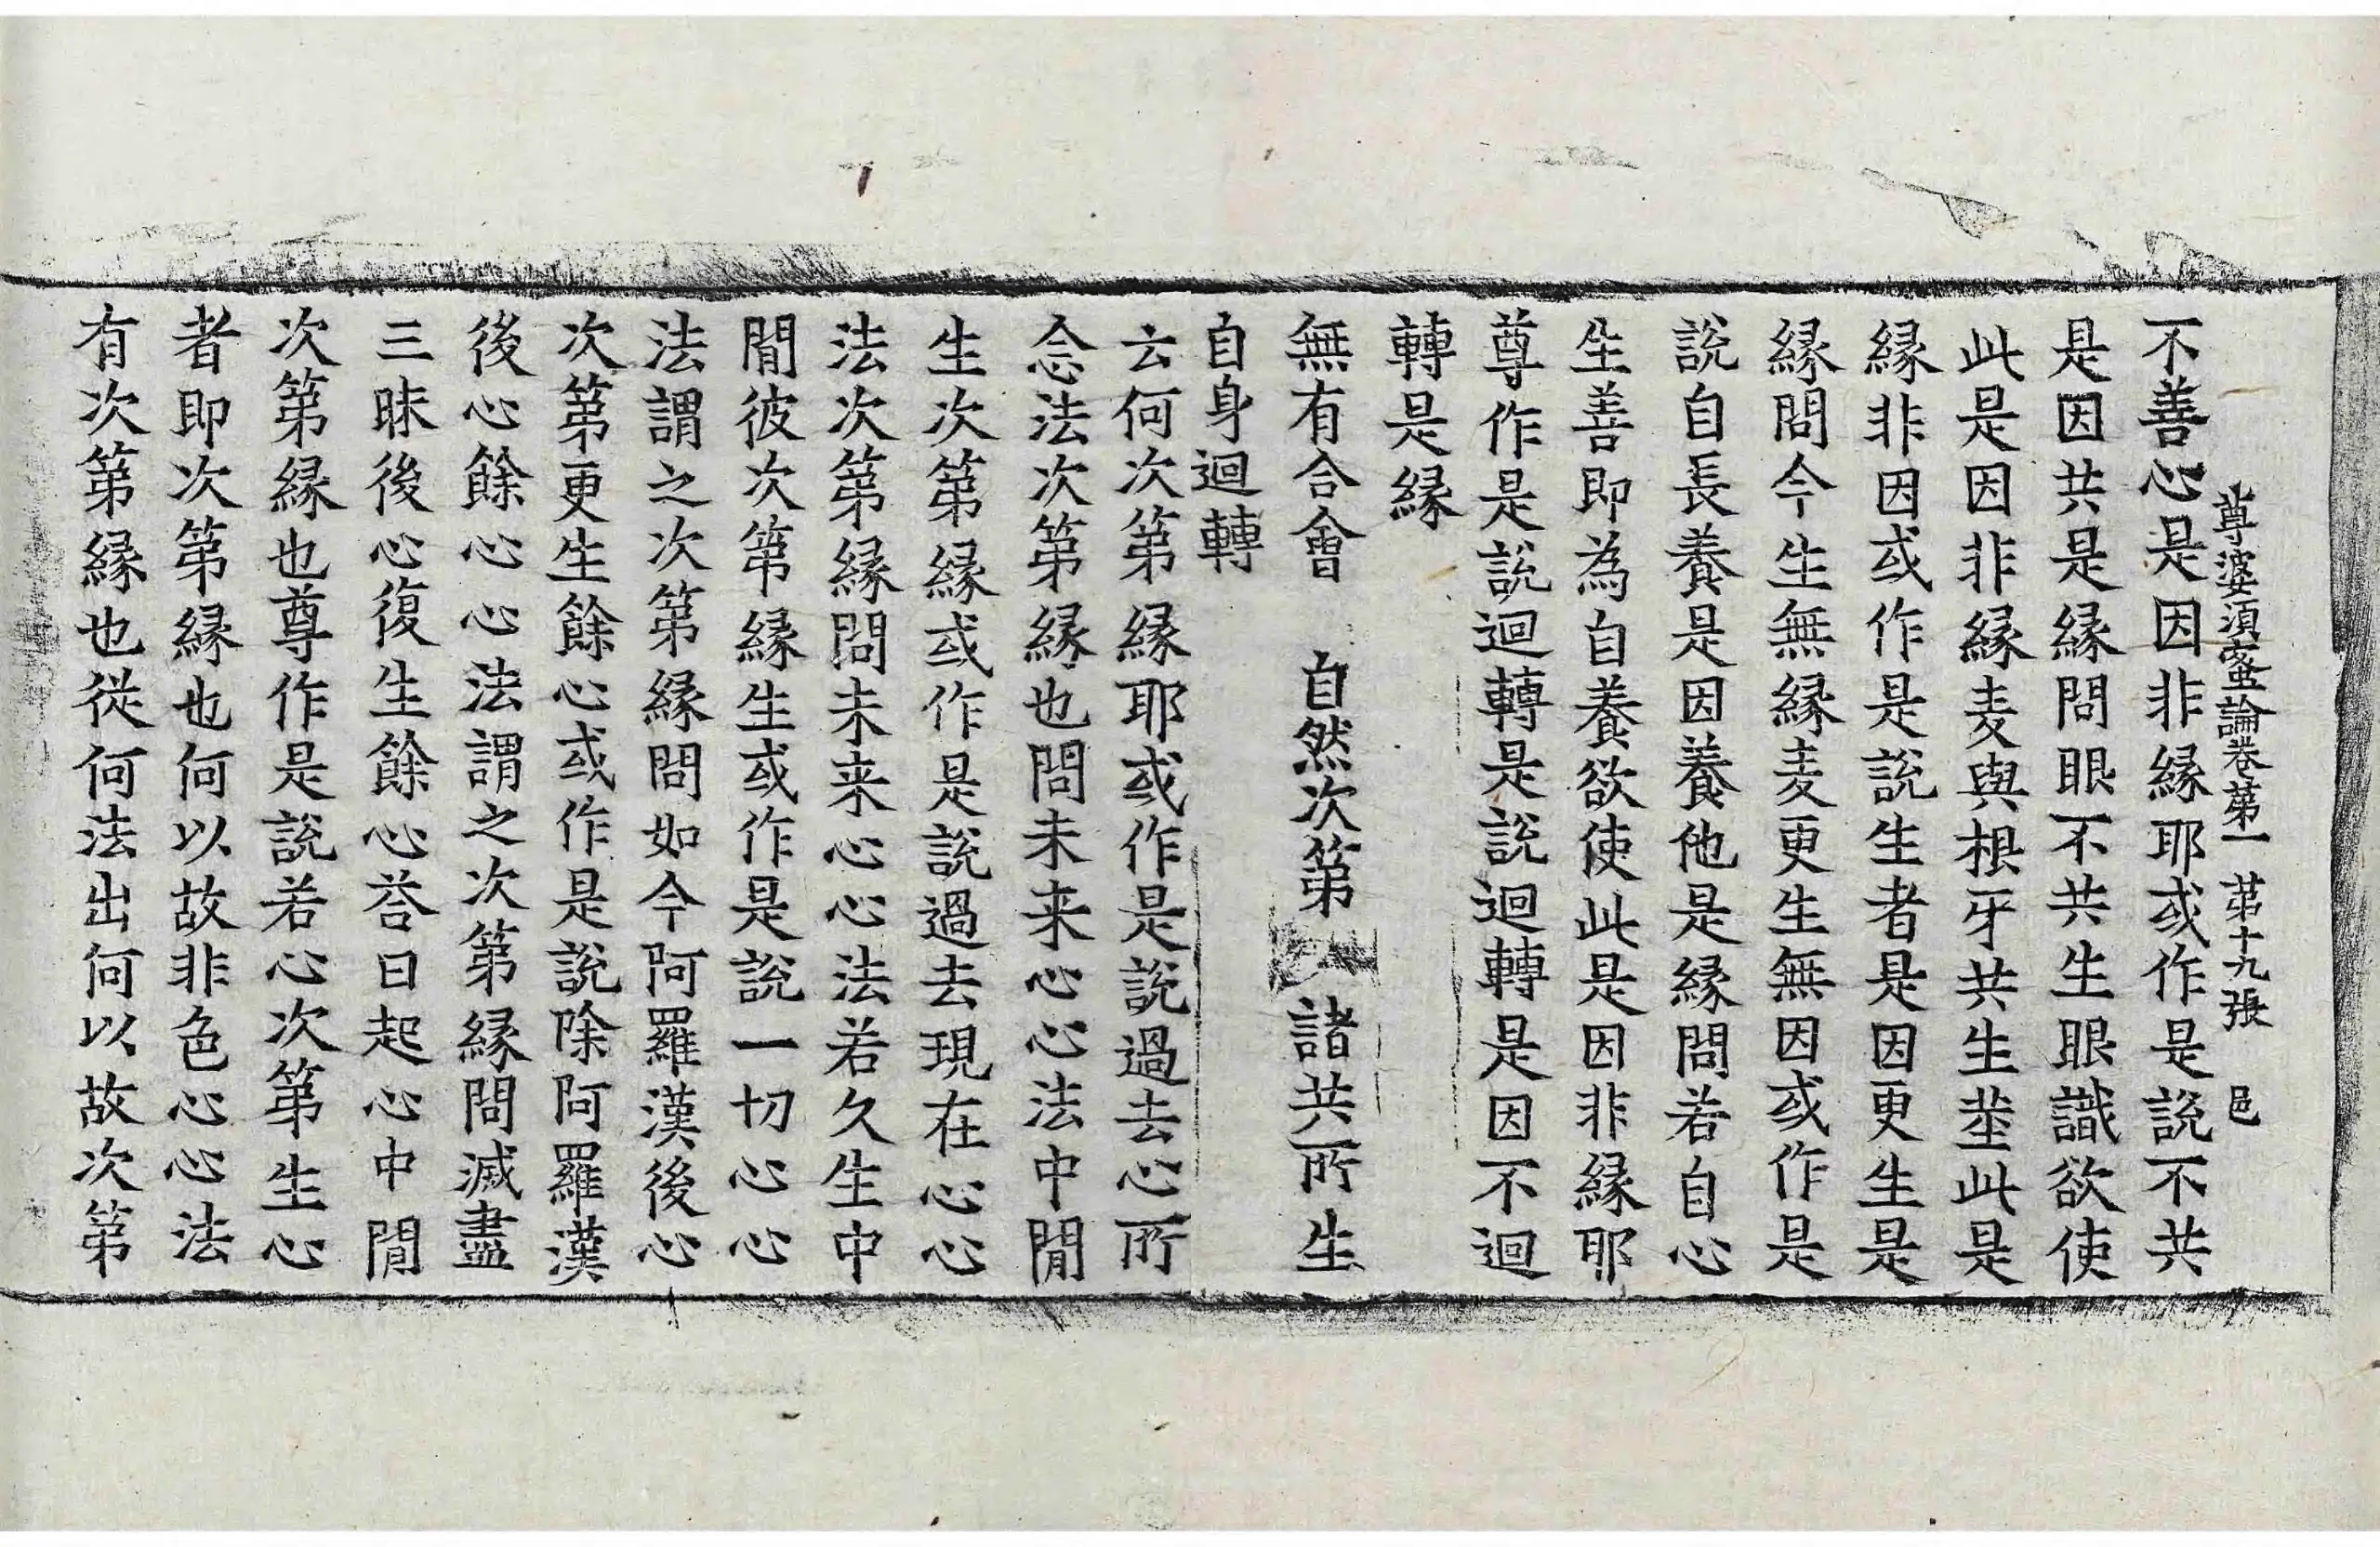 尊婆須蜜論卷第一　第十九張　邑
不善心是因非緣耶或作是說不共
是因共是緣問眼不共生眼識欲使
此是因非緣麦與根牙共生莖此是
緣非因或作是說生者是因更生是
緣問今生無緣麦更生無因或作是
說自長養是因養他是緣問若自心
生善即為自養欲使此是因非緣耶
尊作是說迴轉是說迴轉是因不迴
轉是緣
無有合會　自然次第　諸共所生
自身迴轉
云何次第緣耶或作是說過去心所
念法次第緣也問未来心心法中閒
生次第緣或作是說過去現在心心
法次第緣問未来心心法若久生中
閒彼次第緣生或作是說一切心心
法謂之次第緣問如今阿羅漢後心
次第更生餘心或作是說除阿羅漢
後心餘心心法謂之次第緣問滅盡
三昧後心復生餘心荅曰起心中閒
次第緣也尊作是說若心次第生心
者即次第緣也何以故非色心心法
有次第緣也從何法出何以故次第